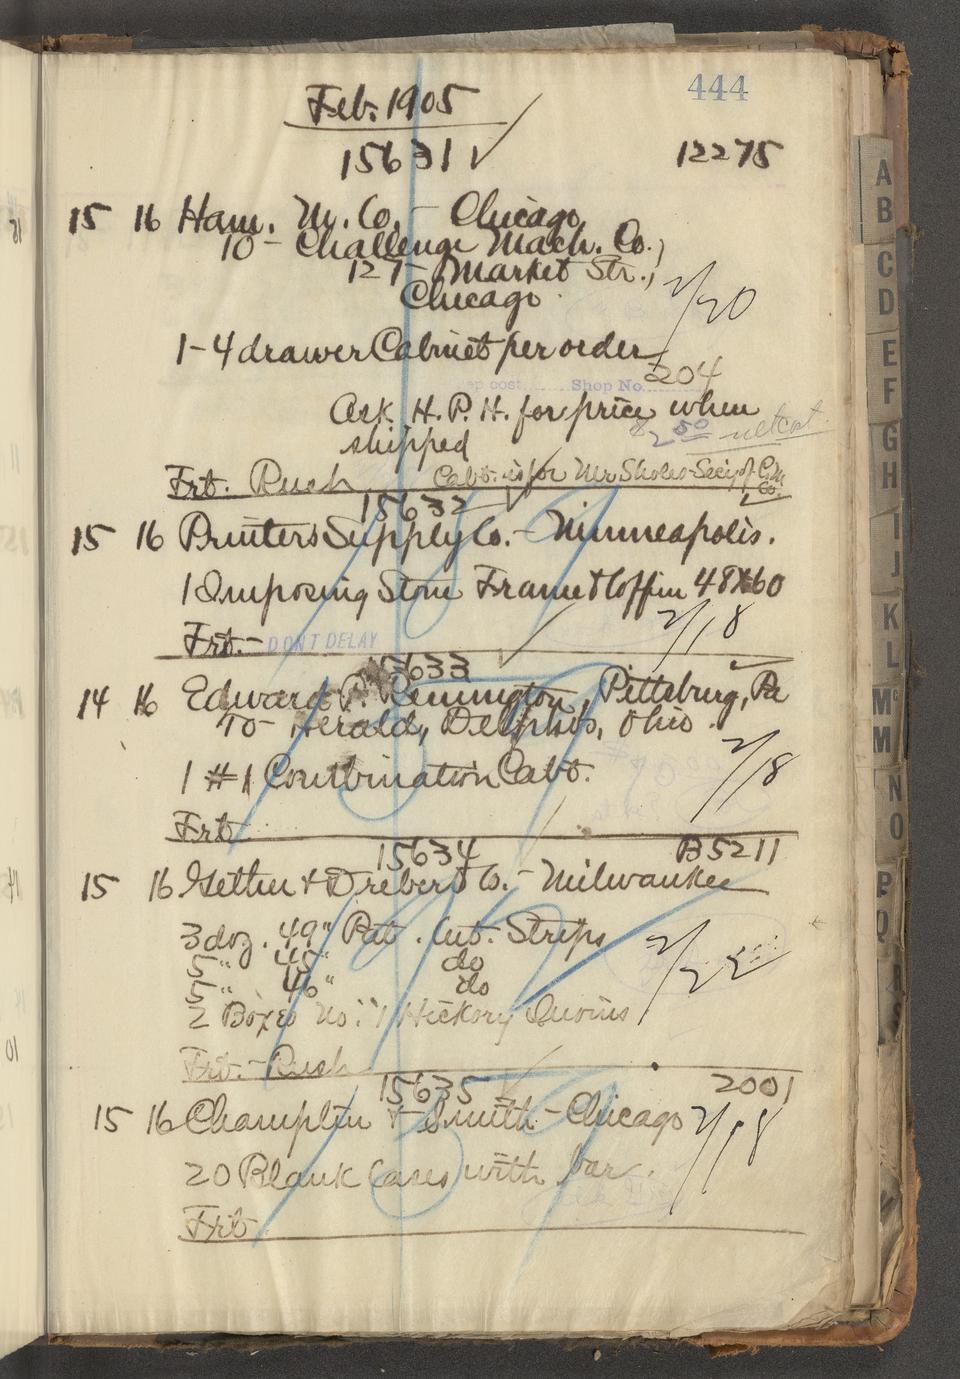 444
Feb. 1905
15631 12275
15 16 Ham. M. Co. - Chicago
To - Challenge Mach. Co.,
127 - Market Str.,
Chicago
2/20
1 - 4 drawer Cabinet per order
Shop No. 204
Ask H. P. H. for price when
shipped
2 50 net cost
Frt. Rush Cabt. is for Mr Sholes - Sec'y of C. M. Co.
15632
15 16 Printers Supply Co. - Minneapolis.
1 Imposing Stone Frame & Coffin 48x60
2/18
Frt. - DON'T DELAY
15633
14 16 Edward P. Remington, Pittsburg, Pa
To - Herald, Delphos, Ohio.
1 #1 Combination Cabt. 2/8
Frt.
15634 B5211
15 16 Gether & Drebert Co. - Milwaukee
3 doz. 49" Pat. Cut. Strips
5 " 45" do
5 " 46" do
2/22
2 Boxes No. 1 Hickory Quoins
Frt. - Rush
15635 2001
15 16 Champlin & Smith - Chicago 2/18
20 Blank Cases with bar.
Frt.
A
B
C
D
E
F
G
H
I
J
K
L
Mc
M
N
O
P
Q
R
S